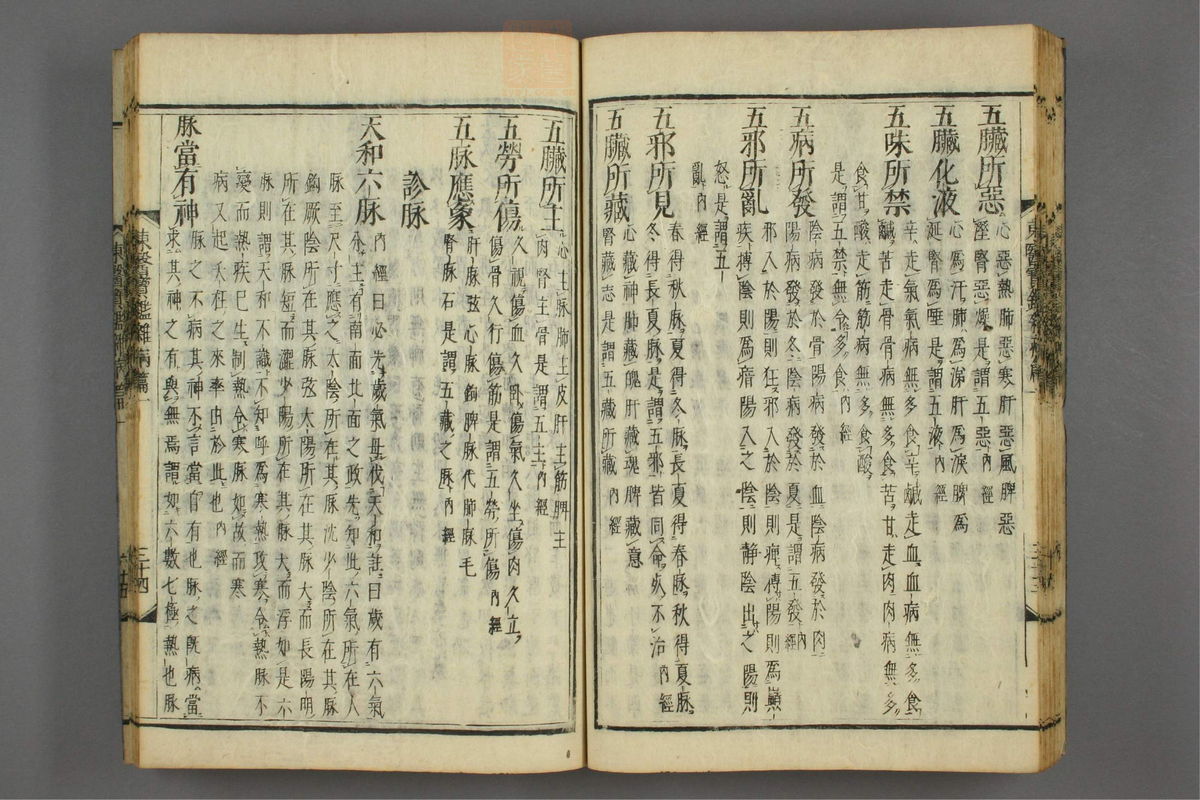 五臟所惡
心惡熱肺惡寒肝惡風脾惡
濕腎惡燥是謂五惡內經
五臟化液
心爲汗肺爲涕肝爲淚脾爲
涎腎爲唾是謂五液內經
五味所禁
辛走氣氣病無多食辛鹹走血血病無多食
鹹苦走骨骨病無多食苦甘走肉肉病無多
食甘酸走筋筋病無多食酸
是謂五禁無令多食內經
五病所發
陰病發於骨陽病發於血陰病發於肉
陽病發於冬陰病發於夏是謂五發內經
五邪所亂
邪入於陽則狂邪入於陰則痺搏陽則爲巓
疾搏陰則爲瘖陽入之陰則静陰出之陽則
怒是謂五
亂內經
五邪所見
春得秋脉夏得冬脉長夏得春脉秋得夏脉
冬得長夏脉是謂五邪皆同命死不治內經
五臟所藏
心藏神肺藏魄肝藏魂脾藏意
腎藏志是謂五藏所藏內經
五臟所主
心主脉肺主皮肝主筋脾主
肉腎主骨是謂五主內經
五勞所傷
久視傷血久臥傷氣久坐傷肉久立
傷骨久行傷筋是謂五勞所傷內經
五脉應象
肝脉弦心脉鉤脾脉代肺脉毛
腎脉石是謂五藏之脉內經
診脉
天和六脉
內經曰必先歲氣毋伐天和註曰歲有六氣
分主有南面北面之政先知此六氣所在人
脉至尺寸應之太陰所在其脉沈少陰所在其脉
鉤厥陰所在其脉弦太陽所在其脉大而長陽明
所在其脉短而澁少陽所在其脉大而浮如是六
脉則謂天和不識不知呼爲寒熱攻寒令熱脉不
變而熱疾已生制熱令寒脉如故而寒
病又起欲求其適安可得乎夭枉之來率由於此也內經
脉當有神
脉之不病其神不言當自有也脉之既病當
求其神之有與無焉謂如六數七極熱也脉
東醫寶鑑雜病篇一
三十四